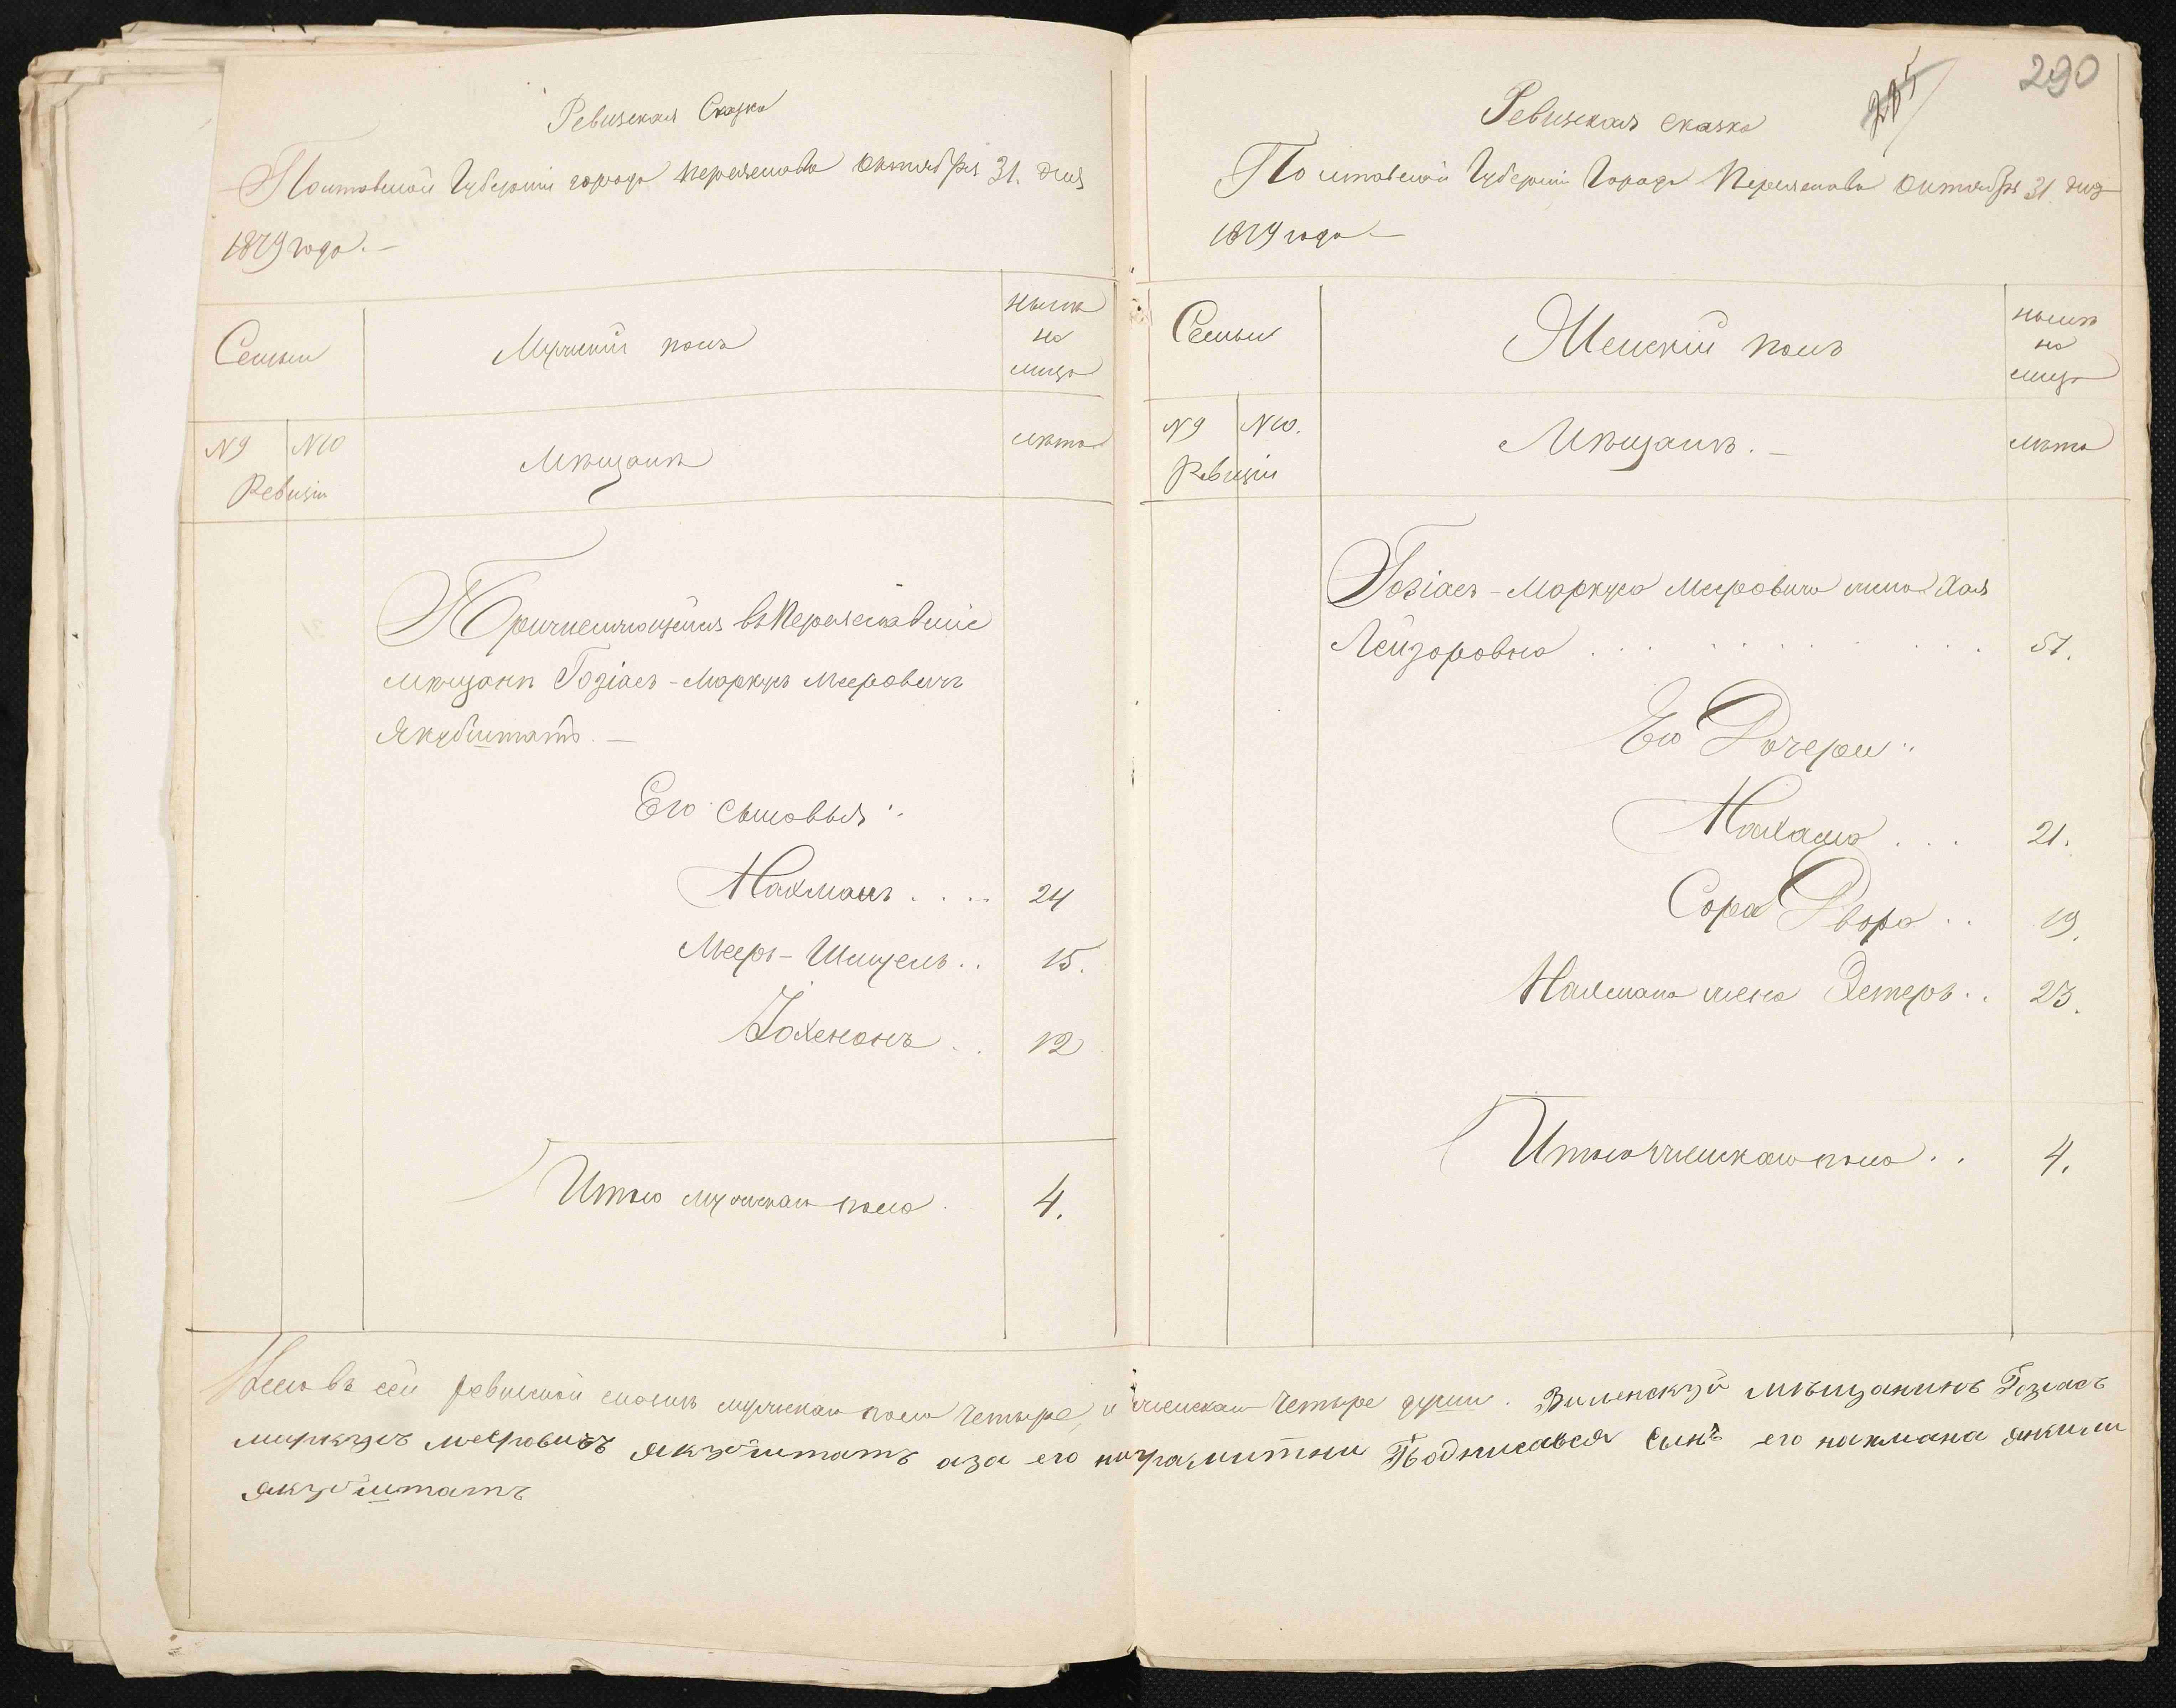 Ревизская Сказка
Полтавской Губерніи города Переяслава Октября 31. дня
1879 года. —
Семьи
Мужескій полъ
Нынѣ
на
лицо
№ 9 № 10
Ревизіи
Мѣщанъ
лѣта
Причисляющійся въ Переяславскіе
мѣщане Гозіасъ-Маркусъ Мееровичъ
Якубштатъ. —
Его сыновья:
Нахманъ . . . . 24
Мееръ- . . 15.
Іохенонъ . . 12
Итого мужскаго пола . 4.
285
290
Ревизская сказка
Полтавской Губерніи Города Переяслава Октября 31 дня
1879 года —
Семьи
Женскій полъ
нынѣ
на
лицо
№ 9 № 10.
Ревизіи
Мѣщанъ. —
лѣта
Гозіасъ-Маркуса Мееровича жена Хая
Лейзоровна . . . . . . . . . 51.
Его Дочери:
Махама . . . 21.
Сора Двора . . 19.
Нахмана жена Эстеръ . . 23.
Итого женскаго пола . . 4.
Всего въ сей ревизской сказкѣ мужскаго пола четыре, и женскаго четыре души. Виленскуй мѣщанинъ Гозиасъ
маркусъ мееровичъ якубштатъ аза его ниграмитни Подписався Сынъ его нахмана янкили
якубштатъ